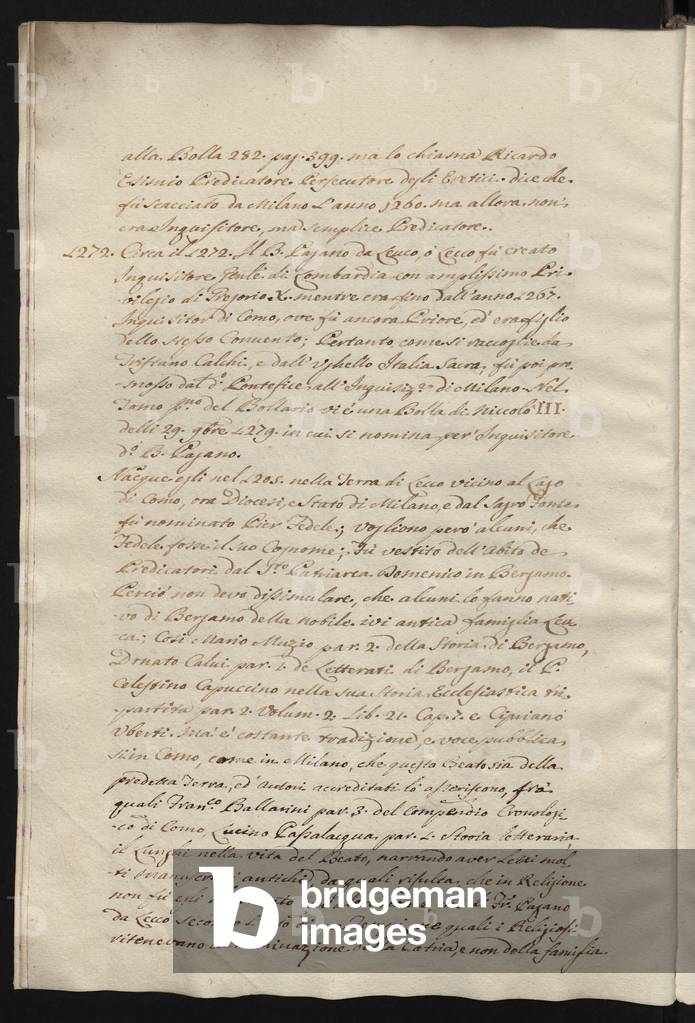 alla Bolla 282. pag. 399. ma lo chiama Ricardo
Esimio Predicatore Persecutore degli Eretici. dice che
fù scacciato da Milano l'anno 1260. ma allora non
era Inquisitore, ma semplice Predicatore.
1272. Circa il 1272. Il B. Pagano da Leuco, ò Lecco fù creato
Inquisitore Gnle di Lombardia con amplissimo Pri-
vilegio di Gregorio X. mentre era fino dall'anno 1267.
Inquisitor di Como, ove fù ancora Priore, ed era figlio
dello stesso Convento; Pertanto come si raccoglie da
Tristano Calchi, e dall'Ughello Italia Sacra, fù poi pro-
-mosso dal do. Pontefice all'Inquisize. di Milano. Nel
Tomo pmo. del Bollario vi è una Bolla di Niccolò III.
delli 29. 9bre 1279. in cui si nomina per Inquisitore
do. B. Pagano.
Nacque egli nel 1205. nella Terra di Lecco vicino al Lago
di Como, ora Diocesi, e Stato di Milano, e dal Sagro Fonte
fù nominato Pier Fedele; vogliono però alcuni, che
Fedele fosse il suo Cognome; Fù vestito dell'Abito de
Predicatori dal Sto. Patriarca Domenico in Bergamo.
Perciò non devo dissimulare, che alcuni lo fanno nati-
-vo di Bergamo della nobile ivi antica famiglia Leu-
ca; Così Mario Muzio par. 2. della Storia di Bergamo,
Donato Calvi par. 1. de Letterati di Bergamo, il P.
Celestino Capuccino nella sua Storia Ecclesiastica tri-
partita par. 2. Volum. 2. Lib. 21. Cap. i. e Cipriano
Uberti. Ma è costante tradizione, e voce pubblica
sì in Como, come in Milano, che questo Beato sia della
predetta Terra, ed autori accreditati lo asseriscono, fra
quali Franco. Ballarini par. 3. del Compendio Cronologi-
co di Como, Lucino Passalacqua par. 1. Storia letteraria,
il Lunghi nella vita del Beato, narrando aver Letti mol-
-ti Manuscritti antichi, da quali risulta che in Religione
non fù egli Fr. Pagano
da Lecco secondo quali i Religiosi
ritenevano la Patria, e non della famiglia.
bridgeman
images